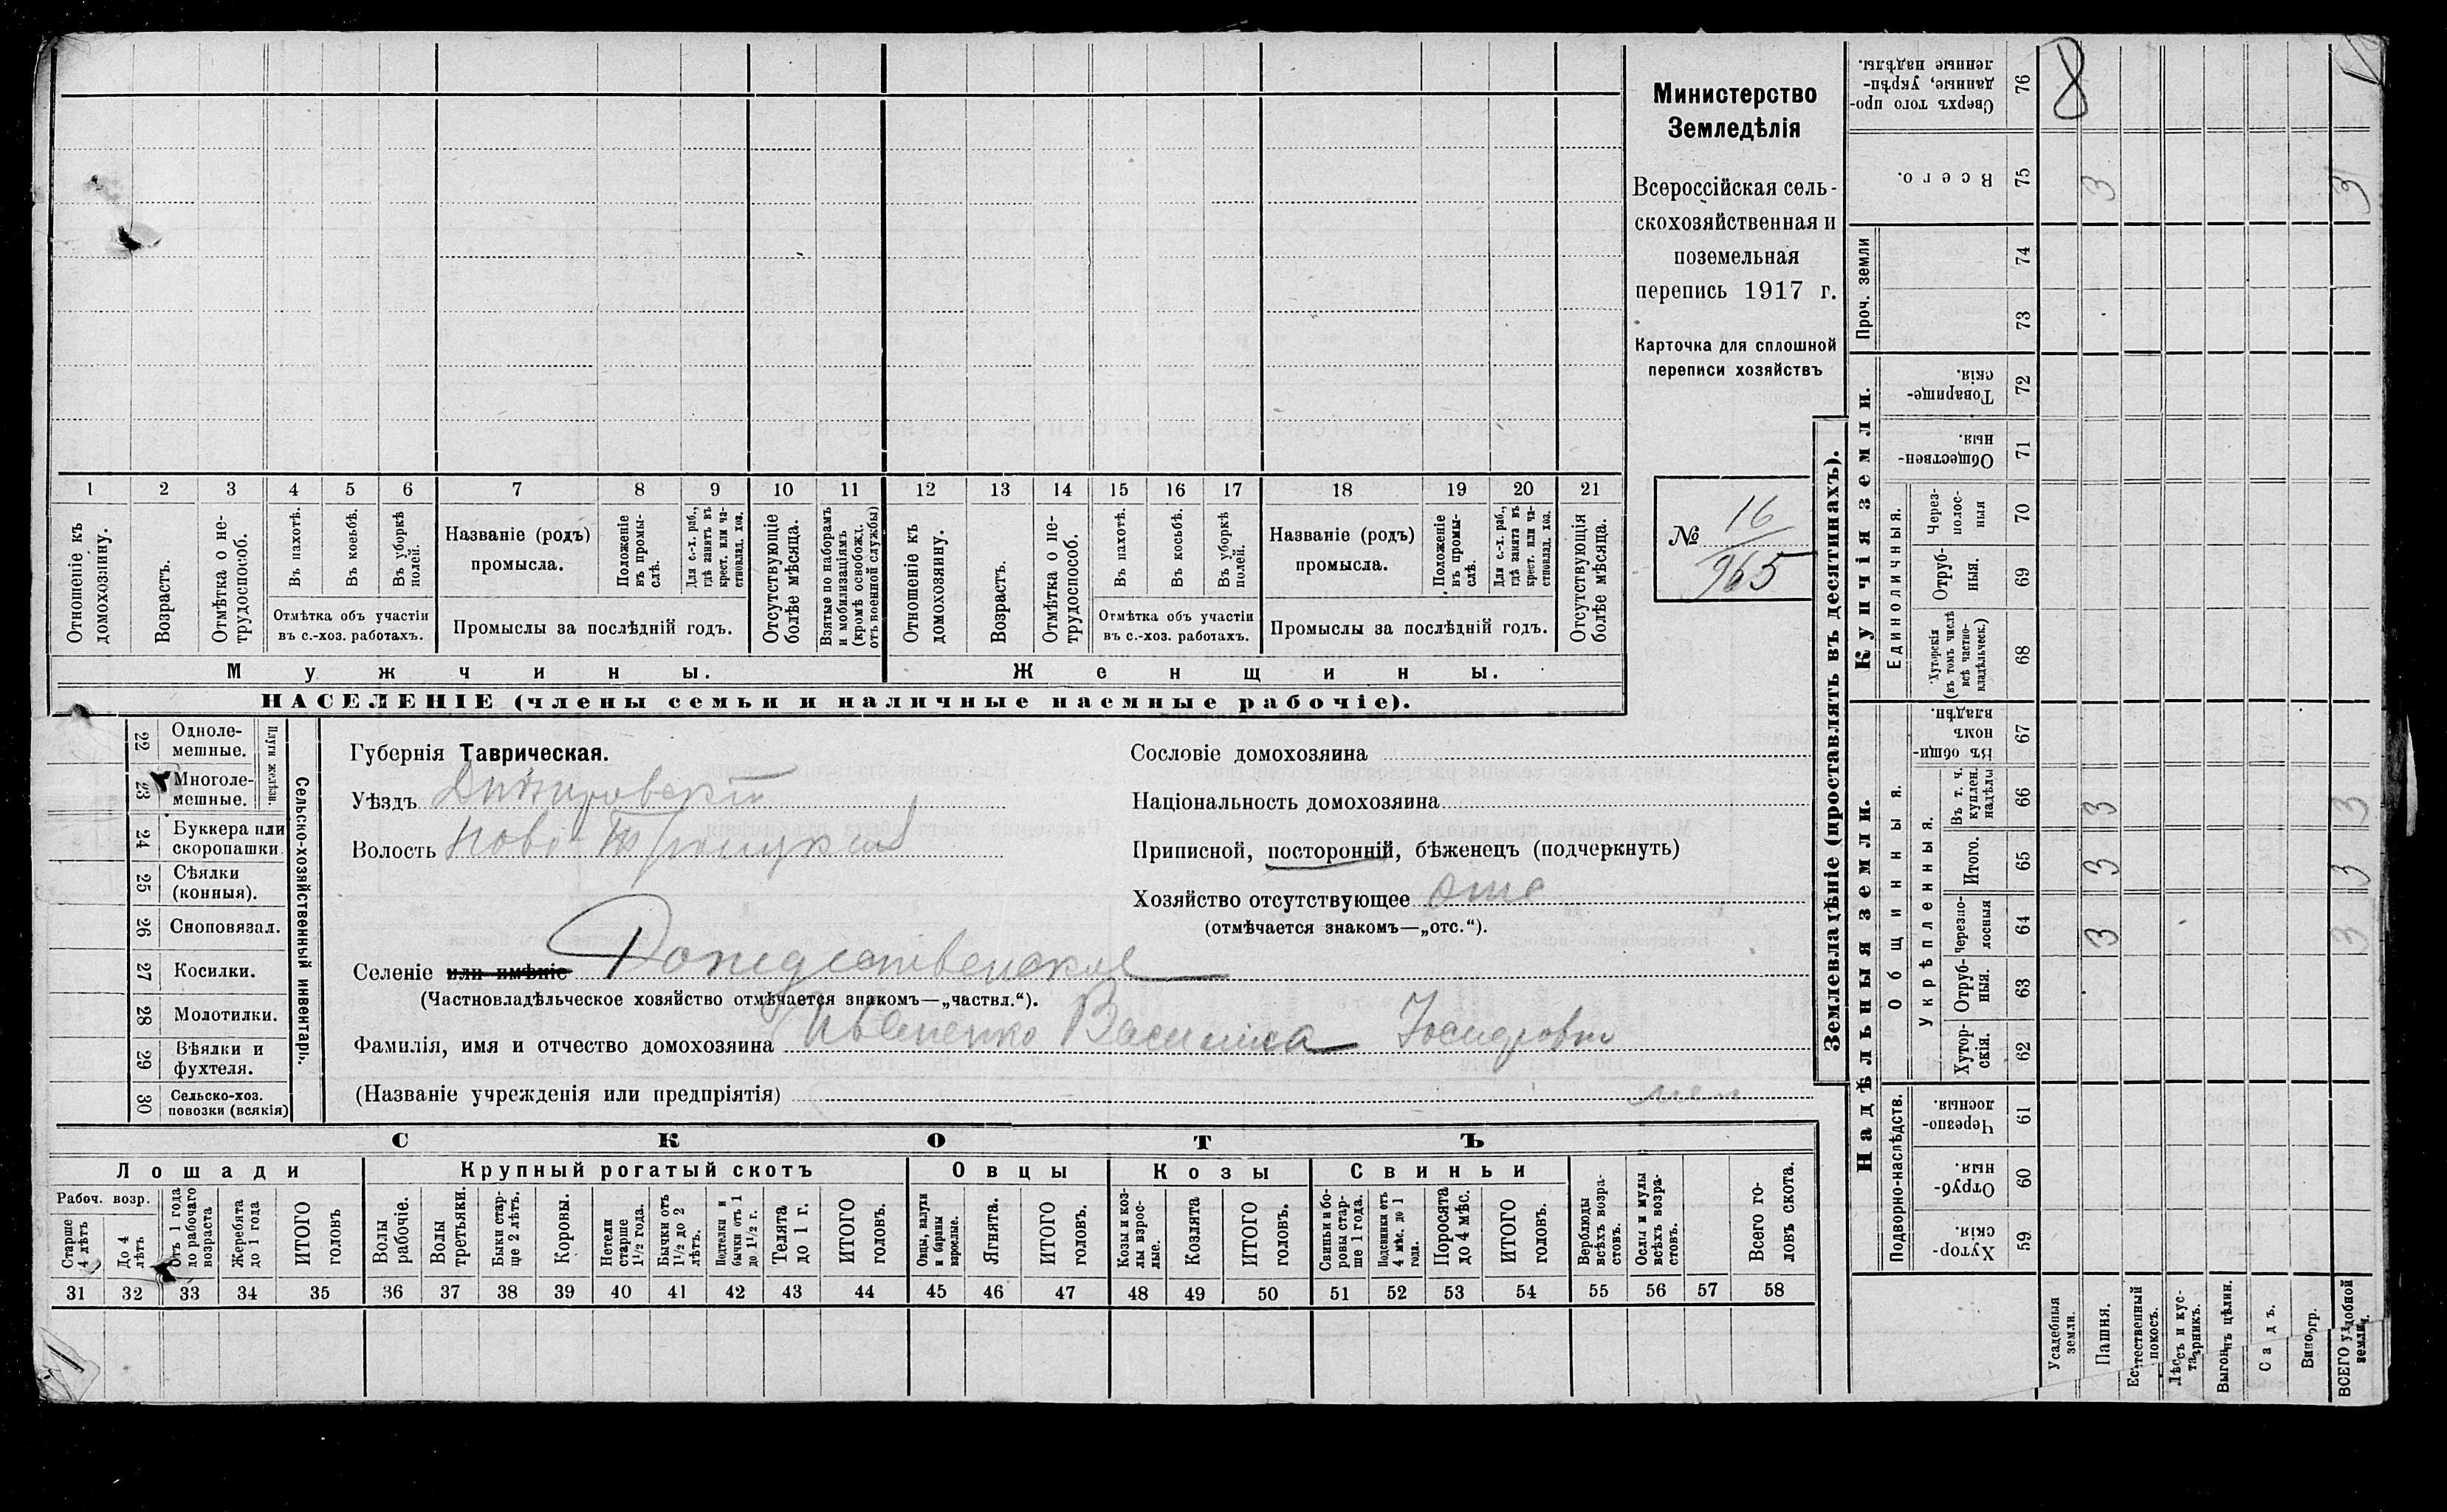 Министерство
Земледѣлія
Всероссійская сель-
скохозяйственная и
поземельная
перепись 1917 г.
Карточка для сплошной
переписи хозяйствъ
№ 16
965
1 2 3 4 5 6 7 8 9 10 11 12 13 14 15 16 17 18 19 20 21
Отношеніе къ домохозяину.
Возрастъ.
Отмѣтка о не-трудоспособ.
Въ пахотѣ.
Въ косьбѣ.
Въ уборкѣ полей.
Отмѣтка объ участіи
въ с.-хоз. работахъ.
Названіе (родъ)
промысла.
Положеніе въ промы-слѣ.
Для с.-х. раб., гдѣ занятъ въ крест. или ча-стновлад. хоз.
Промыслы за послѣдній годъ.
Отсутствующіе болѣе мѣсяца.
Взятые по наборамъ и мобилизаціямъ (кромѣ освобожд. отъ военной службы)
Отношеніе къ домохозяину.
Возрастъ.
Отмѣтка о не-трудоспособ.
Въ пахотѣ.
Въ косьбѣ.
Въ уборкѣ полей.
Отмѣтка объ участіи
въ с.-хоз. работахъ.
Названіе (родъ)
промысла.
Положеніе въ промы-слѣ.
Для с.-х. раб., гдѣ занята въ крест. или ча-стновлад. хоз.
Промыслы за послѣдній годъ.
Отсутствующія болѣе мѣсяца.
Мужчины.
Женщины.
НАСЕЛЕНІЕ (члены семьи и наличные наемные рабочіе).
22 Одноле-мешные.
23 Многоле-мешные.
Плуги желѣзн.
24 Буккера или скоропашки
25 Сѣялки (конныя).
26 Сноповязал.
27 Косилки.
28 Молотилки.
29 Вѣялки и фухтеля.
30 Сельско-хоз. повозки (всякія)
Сельско-хозяйственный инвентарь.
Губернія Таврическая.
Уѣздъ Днѣпровскій
Волость Ново-Троицкая
Сословіе домохозяина
Національность домохозяина
Приписной, посторонній, бѣженецъ (подчеркнуть)
Хозяйство отсутствующее отс
(отмѣчается знакомъ—„отс.“).
Селеніе или имѣніе Рождественское
(Частновладѣльческое хозяйство отмѣчается знакомъ—„частвл.“).
Фамилія, имя и отчество домохозяина Иваненко Василиса
(Названіе учрежденія или предпріятія)
СКОТЪ
Лошади
Крупный рогатый скотъ
Овцы
Козы
Свиньи
Рабоч. возр.
Старше 4 лѣтъ
До 4 лѣтъ
Отъ 1 года до рабочаго возраста
Жеребята до 1 года
ИТОГО головъ
Волы рабочіе.
Волы третьяки.
Быки стар-ше 2 лѣтъ.
Коровы.
Нетели старше 1½ года.
Бычки отъ 1½ до 2 лѣтъ.
Подтелки и бычки отъ 1 до 1½ г.
Телята до 1 г.
ИТОГО головъ.
Овцы, валухи и бараны взрослые.
Ягнята.
ИТОГО головъ.
Козы и коз-лы взрос-лые.
Козлята
ИТОГО головъ.
Свиньи и бо-ровы стар-ше 1 года.
Подсвинки отъ 4 мѣс. до 1 года.
Поросята до 4 мѣс.
ИТОГО головъ.
Верблюды всѣхъ возра-стовъ.
Ослы и мулы всѣхъ возра-стовъ.
Всего го-ловъ скота.
31 32 33 34 35 36 37 38 39 40 41 42 43 44 45 46 47 48 49 50 51 52 53 54 55 56 57 58
Землевладѣніе (проставлять въ десятинахъ).
Сверхъ того про-данные, укрѣп-ленные надѣлы. 76 8
Всего. 75 3 3
Проч. земли
74
73
Купчія земли.
Товарище-скія. 72
Обществен-ныя. 71
Единоличныя.
Через-полос-ныя 70
Отруб-ныя. 69
Хуторскія (въ томъ числѣ всѣ частно-владѣльческ.) 68
Надѣльныя земли.
Общинныя.
Въ общи-номъ владѣн. 67
Укрѣпленныя.
Въ т. ч. куплен. надѣлы 66 3 3
Итого. 65 3 3
Черезпо-лосныя 64 3 3
Отруб-ныя. 63
Хутор-скія. 62
Подворно-наслѣдств.
Черезпо-лосныя. 61
Отруб-ныя. 60
Хутор-скія 59
Усадебныя земли.
Пашня.
Естественный покосъ.
Лѣсъ и кус-тарникъ.
Выгонъ цѣлин.
Садъ.
Виногр.
ВСЕГО удобной земли.